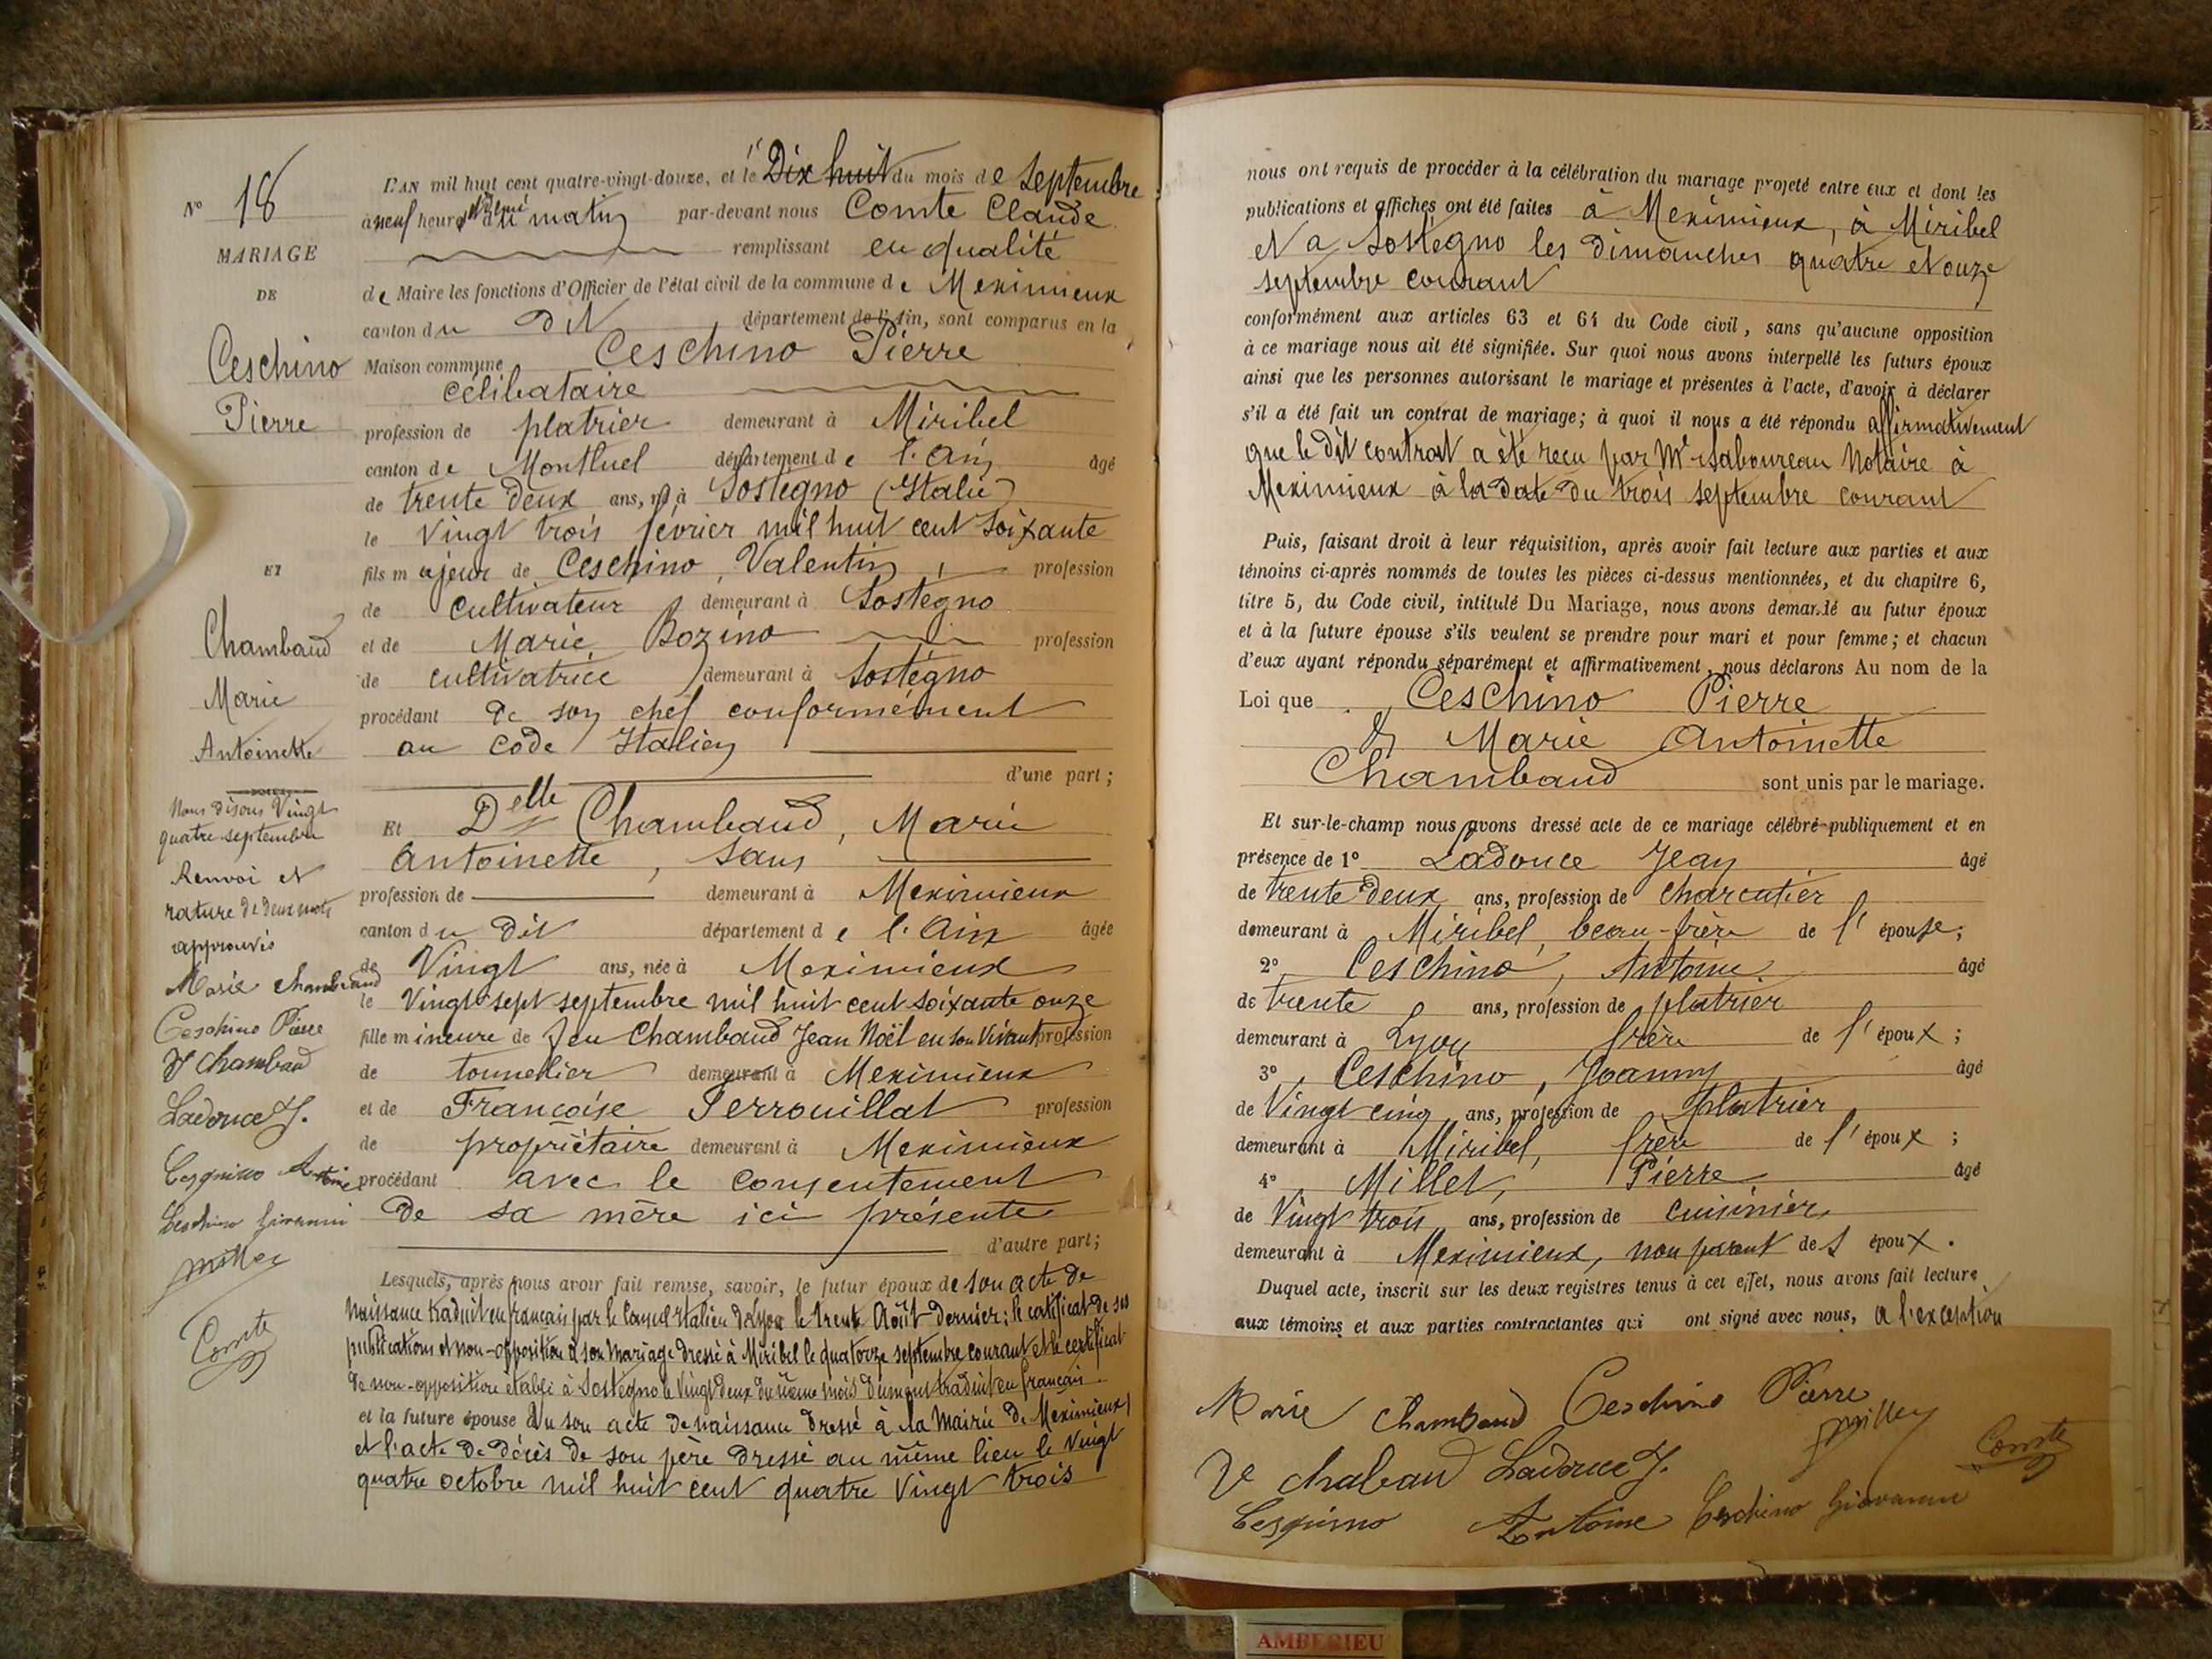 N° 18
MARIAGE
DE
Ceschino
Pierre
ET
Chambaud
Marie
Antoinette
Nous disons Vingt
quatre septembre
Renvoi et
rature de deux mots
approuvés
Marie Chambaud
Ceschino Pierre
Ve Chambaud
Ladouce J.
Cesquino Antoine
Ceschino Giovanni
Millet
Comte
L'AN mil huit cent quatre-vingt-douze, et le Dix huit du mois de Septembre
à neuf heures du matin par-devant nous Comte Claude
remplissant en qualité
de Maire les fonctions d'Officier de l'état civil de la commune de Meximieux
canton du dit département de l'Ain, sont comparus en la
Maison commune Ceschino Pierre
célibataire
profession de platrier demeurant à Miribel
canton de Montluel département de l'Ain âgé
de trente deux ans, né à Sostegno (Italie)
le Vingt trois février mil huit cent soixante
fils majeur de Ceschino, Valentin, profession
de cultivateur demeurant à Sostégno
et de Marie Bozino profession
de cultivatrice demeurant à Sostégno
procédant de son chef conformément
au code Italien
d'une part;
Et Delle Chambaud, Marie
Antoinette, sans
profession de demeurant à Meximieux
canton du dit département de l'Ain âgée
de Vingt ans, née à Meximieux
le Vingt sept septembre mil huit cent soixante onze
fille mineure de feu Chambaud Jean Noël en son Vivant profession
de tonnelier demeurant à Meximieux
et de Françoise Perrouillat profession
de propriétaire demeurant à Meximieux
procédant avec le consentement
de sa mère ici présente
d'autre part;
Lesquels, après nous avoir fait remise, savoir, le futur époux de son acte de
naissance traduit en français par le Consul Italien de Lyon le trente Août dernier; le certificat de ses
publications et non-opposition à son mariage dressé à Miribel le quatorze septembre courant et le certificat
de non-opposition établi à Sostegno le Vingt deux du même mois dument traduit en français.
et la future épouse du son acte de naissance dressé à la Mairie de Meximieux
et l'acte de décès de son père dressé au même lieu le Vingt
quatre octobre mil huit cent quatre Vingt trois
nous ont requis de procéder à la célébration du mariage projeté entre eux et dont les
publications et affiches ont été faites à Meximieux, à Miribel
et à Sostegno les dimanches quatre et onze
septembre courant
conformément aux articles 63 et 64 du Code civil, sans qu'aucune opposition
à ce mariage nous ait été signifiée. Sur quoi nous avons interpellé les futurs époux
ainsi que les personnes autorisant le mariage et présentes à l'acte, d'avoir à déclarer
s'il a été fait un contrat de mariage; à quoi il nous a été répondu affirmativement
que le dit contrat a été reçu par Me Saboureau Notaire à
Meximieux à la date du trois septembre courant
Puis, faisant droit à leur réquisition, après avoir fait lecture aux parties et aux
témoins ci-après nommés de toutes les pièces ci-dessus mentionnées, et du chapitre 6,
titre 5, du Code civil, intitulé Du Mariage, nous avons demandé au futur époux
et à la future épouse s'ils veulent se prendre pour mari et pour femme; et chacun
d'eux ayant répondu séparément et affirmativement, nous déclarons Au nom de la
Loi que Ceschino Pierre
& Marie Antoinette
Chambaud sont unis par le mariage.
Et sur-le-champ nous avons dressé acte de ce mariage célébré publiquement et en
présence de 1° Ladouce Jean âgé
de trente deux ans, profession de charcutier
demeurant à Miribel, beau-frère de l'épouse;
2° Ceschino, Antoine âgé
de trente ans, profession de platrier
demeurant à Lyon frère de l'époux;
3° Ceschino, Joanny âgé
de Vingt cinq ans, profession de Platrier
demeurant à Miribel, frère de l'époux;
4° Millet, Pierre âgé
de Vingt trois ans, profession de cuisinier
demeurant à Meximieux, non parent des époux.
Duquel acte, inscrit sur les deux registres tenus à cet effet, nous avons fait lecture
aux témoins et aux parties contractantes qui ont signé avec nous, a l'exception
Marie Chambaud Ceschino Pierre
Millet
Comte
Ve chabaud Ladouce J.
Cesquino Antoine Ceschino Giovanni
AMBERIEU